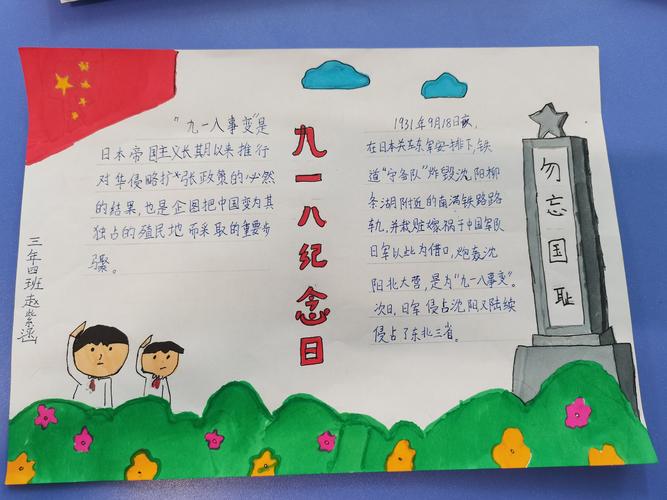 "九一八事变"是
日本帝国主义长其月以来推行
对华侵略扩张政策的必然
的结果，也是企图把中国变为其
独占的殖民地而采取的重要步
骤。
九一八纪念日
1931年9月18日夜，
在日本关东军安排下，铁
道"守备队"炸毁沈阳柳
条湖附近的南满铁路路
轨，并栽赃嫁祸于中国军队
日军以此为借口，炮轰沈
阳北大营，是为"九一八事变"。
次日，日军侵占沈阳又陆续
侵占了东北三省。
勿忘国耻
三年四班赵紫涵